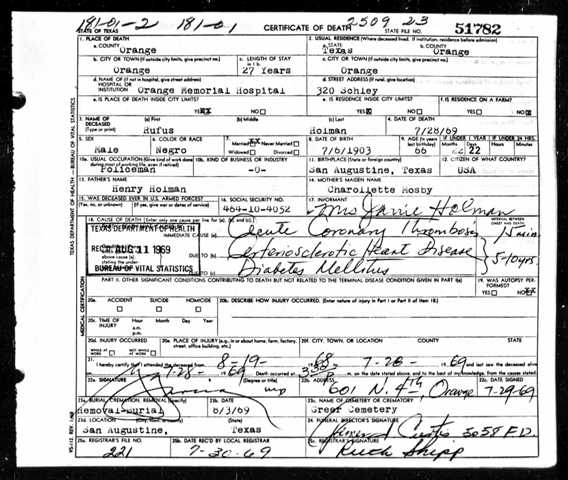 181-01-2 181-01 2509 23
STATE OF TEXAS CERTIFICATE OF DEATH STATE FILE NO. 51782
1. PLACE OF DEATH 2. USUAL RESIDENCE (Where deceased lived. If institution, residence before admission)
a. COUNTY Orange a. STATE Texas b. COUNTY Orange
b. CITY OR TOWN (If outside city limits, give precinct no.) Orange c. LENGTH OF STAY in 1 b. 27 Years c. CITY OR TOWN (If outside city limits, give precinct no.) Orange
d. NAME OF (If not in hospital, give street address) HOSPITAL OR INSTITUTION Orange Memorial Hospital d. STREET ADDRESS (If rural, give location) 320 Schley
e. IS PLACE OF DEATH INSIDE CITY LIMITS? YES NO e. IS RESIDENCE INSIDE CITY LIMITS? YES NO f. IS RESIDENCE ON A FARM? YES NO
3. NAME OF DECEASED (Type or print) (a) First Rufus (b) Middle (c) Last Holman 4. DATE OF DEATH 7/28/69
5. SEX Male 6. COLOR OR RACE Negro 7. Married Never Married Widowed Divorced 8. DATE OF BIRTH 7/6/1903 9. AGE (In years last birthday) 66 IF UNDER 1 YEAR IF UNDER 24 HRS. 22
10a. USUAL OCCUPATION (Give kind of work done during most of working life, even if retired) Policeman 10b. KIND OF BUSINESS OR INDUSTRY -0- 11. BIRTHPLACE (State or foreign country) San Augustine, Texas 12. CITIZEN OF WHAT COUNTRY? USA
13. FATHER'S NAME Henry Holman 14. MOTHER'S MAIDEN NAME Charollette Mosby
15. WAS DECEASED EVER IN U.S. ARMED FORCES? (Yes, no, or unknown) (If yes, give war or dates of service) 16. SOCIAL SECURITY NO. 464-10-4052 17. INFORMANT Mrs Jannie Holman
18. CAUSE OF DEATH (Enter only one cause per line for (a), (b), and (c).) INTERVAL BETWEEN ONSET AND DEATH
TEXAS DEPARTMENT OF HEALTH Acute Coronary Thrombosis 15 min.
REC'D AUG 11 1969 Arteriosclerotic Heart Disease
BUREAU OF VITAL STATISTICS Diabetes Mellitus 5-10 yrs.
PART II. OTHER SIGNIFICANT CONDITIONS CONTRIBUTING TO DEATH BUT NOT RELATED TO THE TERMINAL DISEASE CONDITION GIVEN IN PART I(a) 19. WAS AUTOPSY PERFORMED? YES NO
20a. ACCIDENT SUICIDE HOMICIDE 20b. DESCRIBE HOW INJURY OCCURRED. (Enter nature of injury in Part I or Part II of Item 18.)
20c. TIME OF INJURY Hour Month Day Year a.m. p.m.
20d. INJURY OCCURRED WHILE AT WORK NOT WHILE AT WORK 20e. PLACE OF INJURY (e.g., in or about home, farm, factory, street, office building, etc.) 20f. CITY, TOWN, OR LOCATION COUNTY STATE
21. I hereby certify that I attended the deceased from 8-19- 68 7-28- 69 and last saw the deceased alive
7-28- 69 Death occurred at m., on the date stated above, and to the best of my knowledge, from the causes stated.
22a. SIGNATURE (Degree or title) MD 22b. ADDRESS 601 N. 4th, Orange 22c. DATE SIGNED 7-29-69
23a. BURIAL, CREMATION, REMOVAL (Specify) Removal-Burial 23b. DATE 8/3/69 23c. NAME OF CEMETERY OR CREMATORY Greer Cemetery
23d. LOCATION (City, town, or county) (State) San Augustine, Texas 24. FUNERAL DIRECTOR'S SIGNATURE 3058 F.D.
25a. REGISTRAR'S FILE NO. 221 25b. DATE REC'D BY LOCAL REGISTRAR 7-30-69 25c. REGISTRAR'S SIGNATURE Ruth Shipp
TEXAS DEPARTMENT OF HEALTH - BUREAU OF VITAL STATISTICS
MEDICAL CERTIFICATION